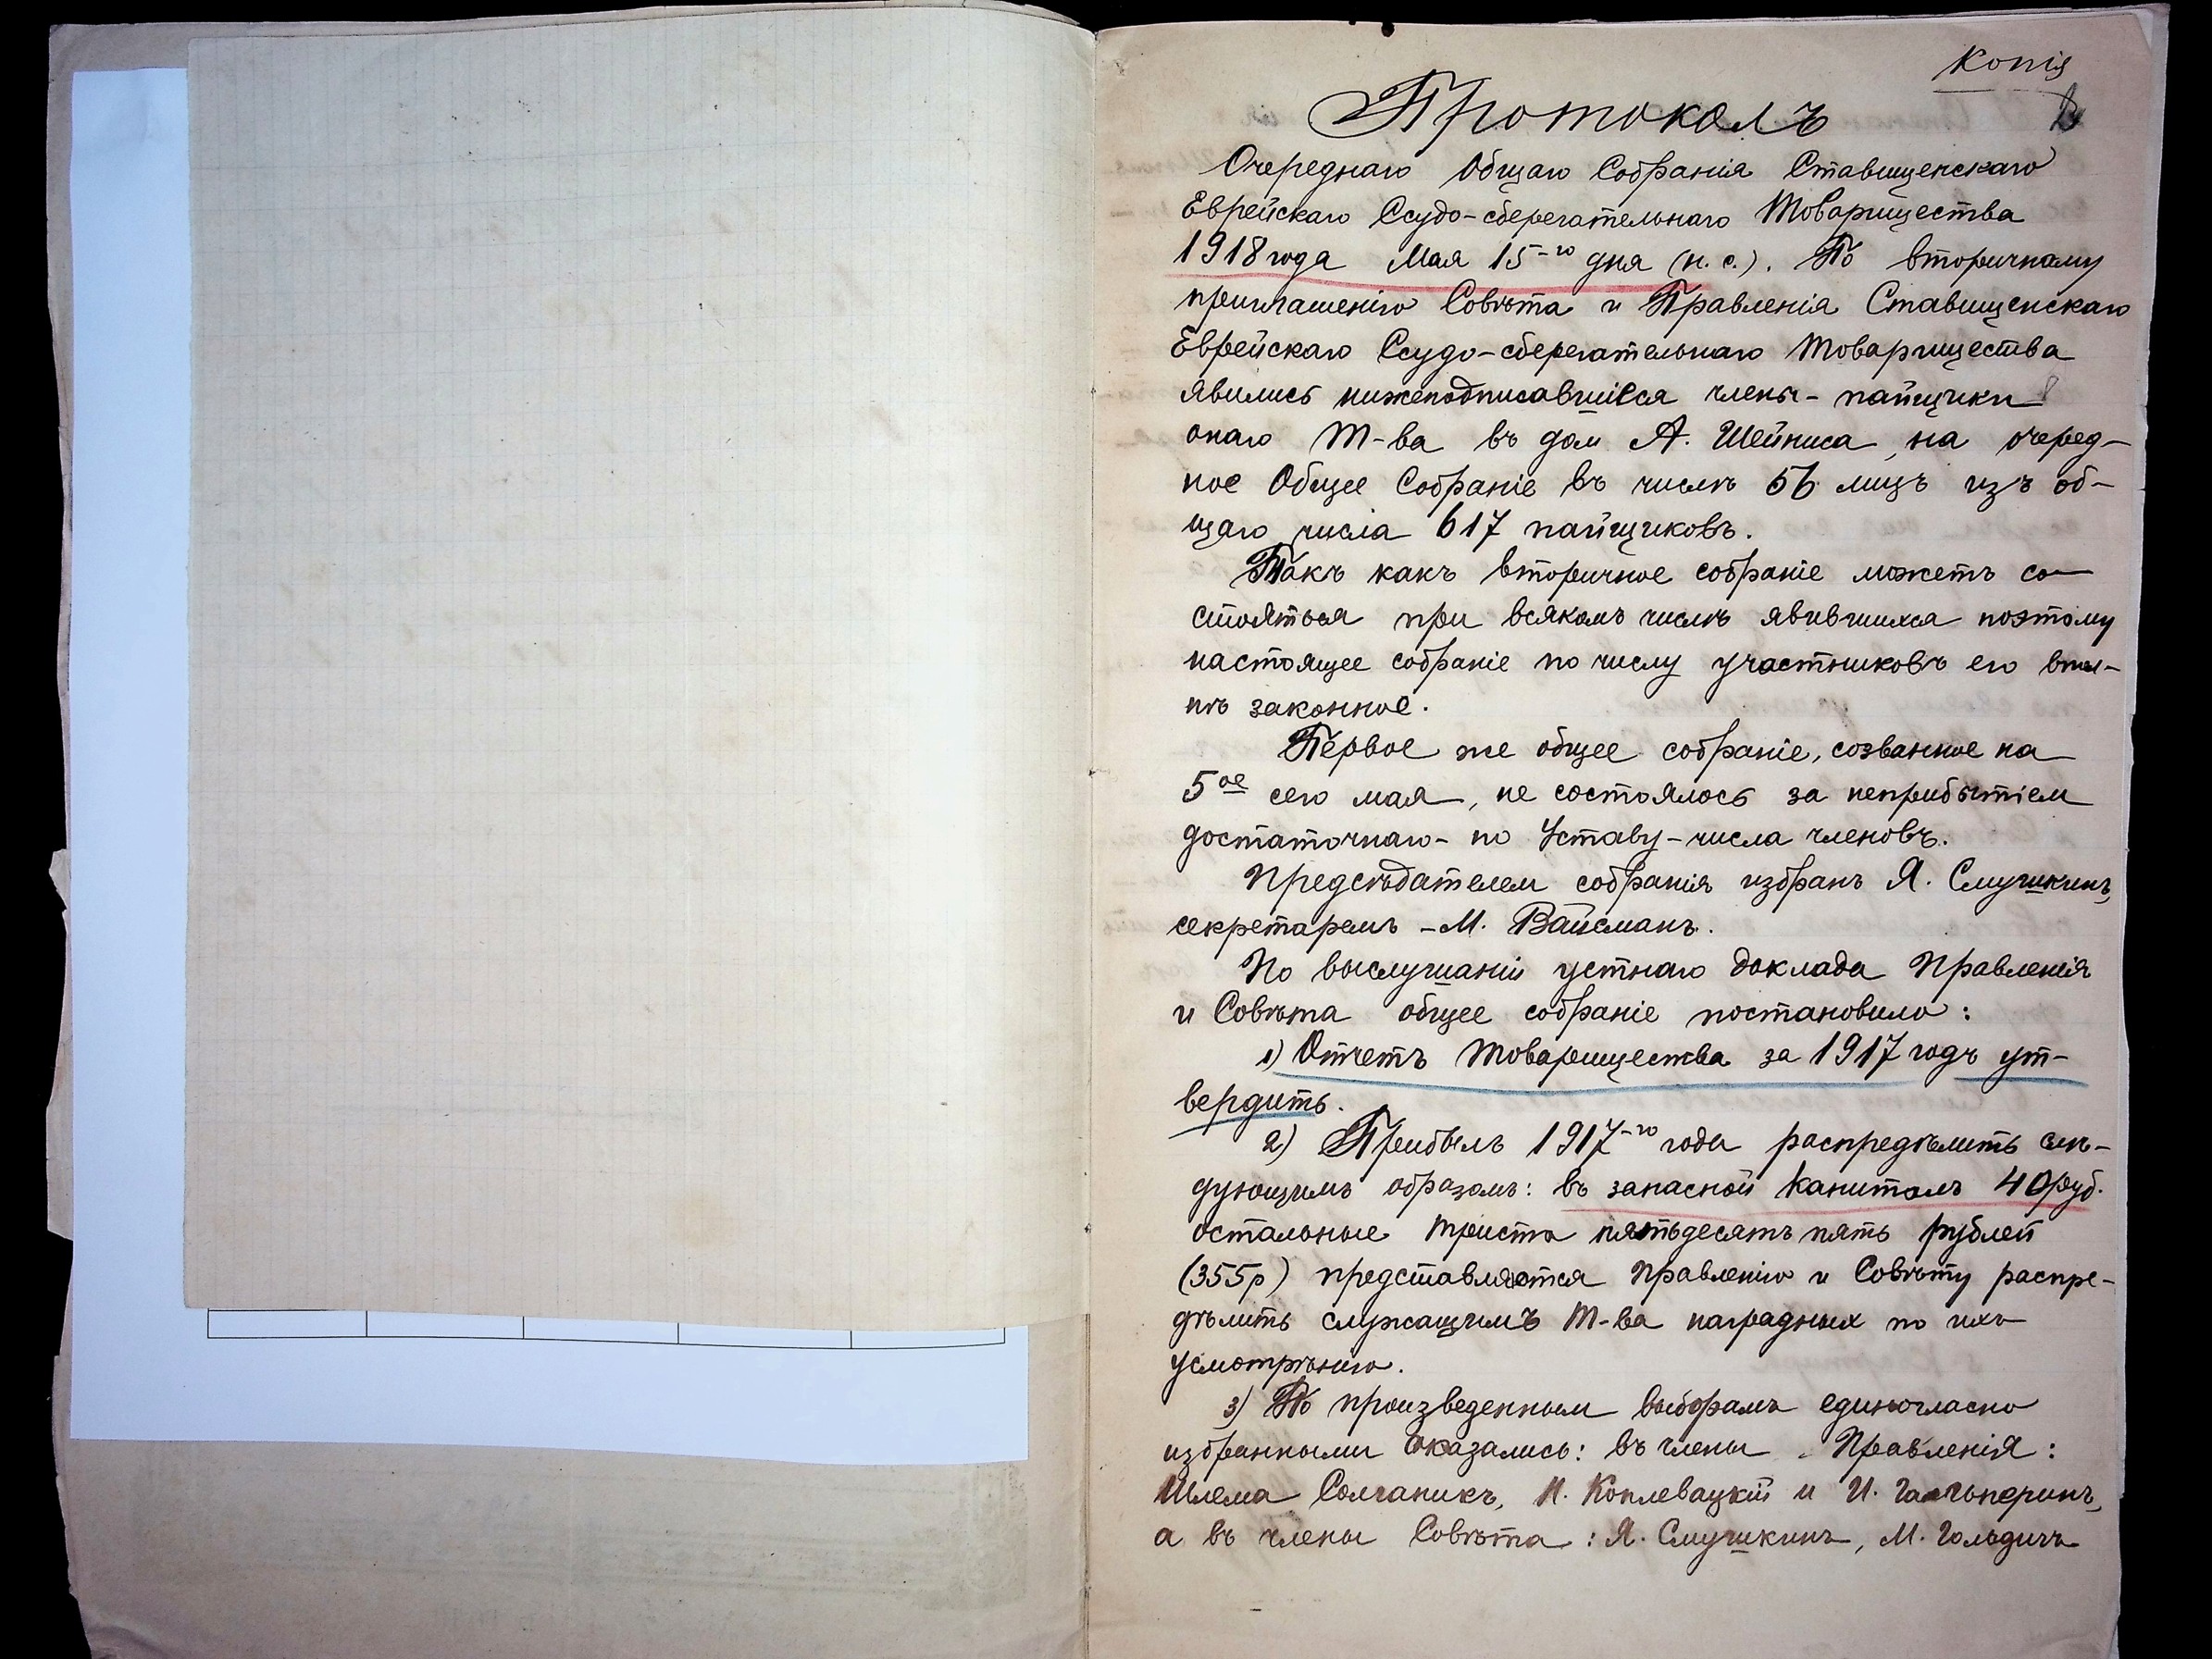 Копія
Протоколъ
Очереднаго Общаго Собранія Ставищенскаго
Еврейскаго Ссудо-сберегательнаго Товарищества
1918 года Мая 15-го дня (н. с.). По вторичному
приглашенію Совѣта и Правленія Ставищенскаго
Еврейскаго Ссудо-сберегательнаго Товарищества
явились нижеподписавшіеся члены-пайщики
онаго Т-ва въ дом А. Шейниса, на очеред-
ное Общее Собраніе въ числѣ 56 лицъ изъ об-
щаго числа 617 пайщиковъ.
Такъ какъ вторичное собраніе можетъ со-
стояться при всякомъ числѣ явившихся поэтому
настоящее собраніе по числу участниковъ его впол-
нѣ законное.
Первое же общее собраніе, созванное на
5ое сего мая, не состоялось за неприбытіем
достаточнаго - по Уставу - числа членовъ.
Предсѣдателем собранія избранъ Я. Смушкинъ,
секретаремъ - М. Вайсманъ.
По выслушаніи устнаго доклада Правленія
и Совѣта общее собраніе постановило:
1) Отчетъ Товарищества за 1917 годъ ут-
вердить.
2) Прибыль 1917-го года распредѣлить слѣ-
дующимъ образомъ: въ запасной капиталъ 40 руб.
остальные триста пятьдесятъ пять рублей
(355р) представляется Правленію и Совѣту распре-
дѣлить служащимъ Т-ва наградных по ихъ
усмотрѣнію.
3) По произведенным выборамъ единогласно
избранными оказались: въ члены Правленія:
Шлема Солганикъ, Н. Коплевацкій и И. Гальперинъ,
а въ члены Совѣта: Я. Смушкинъ, М. Гольдичъ